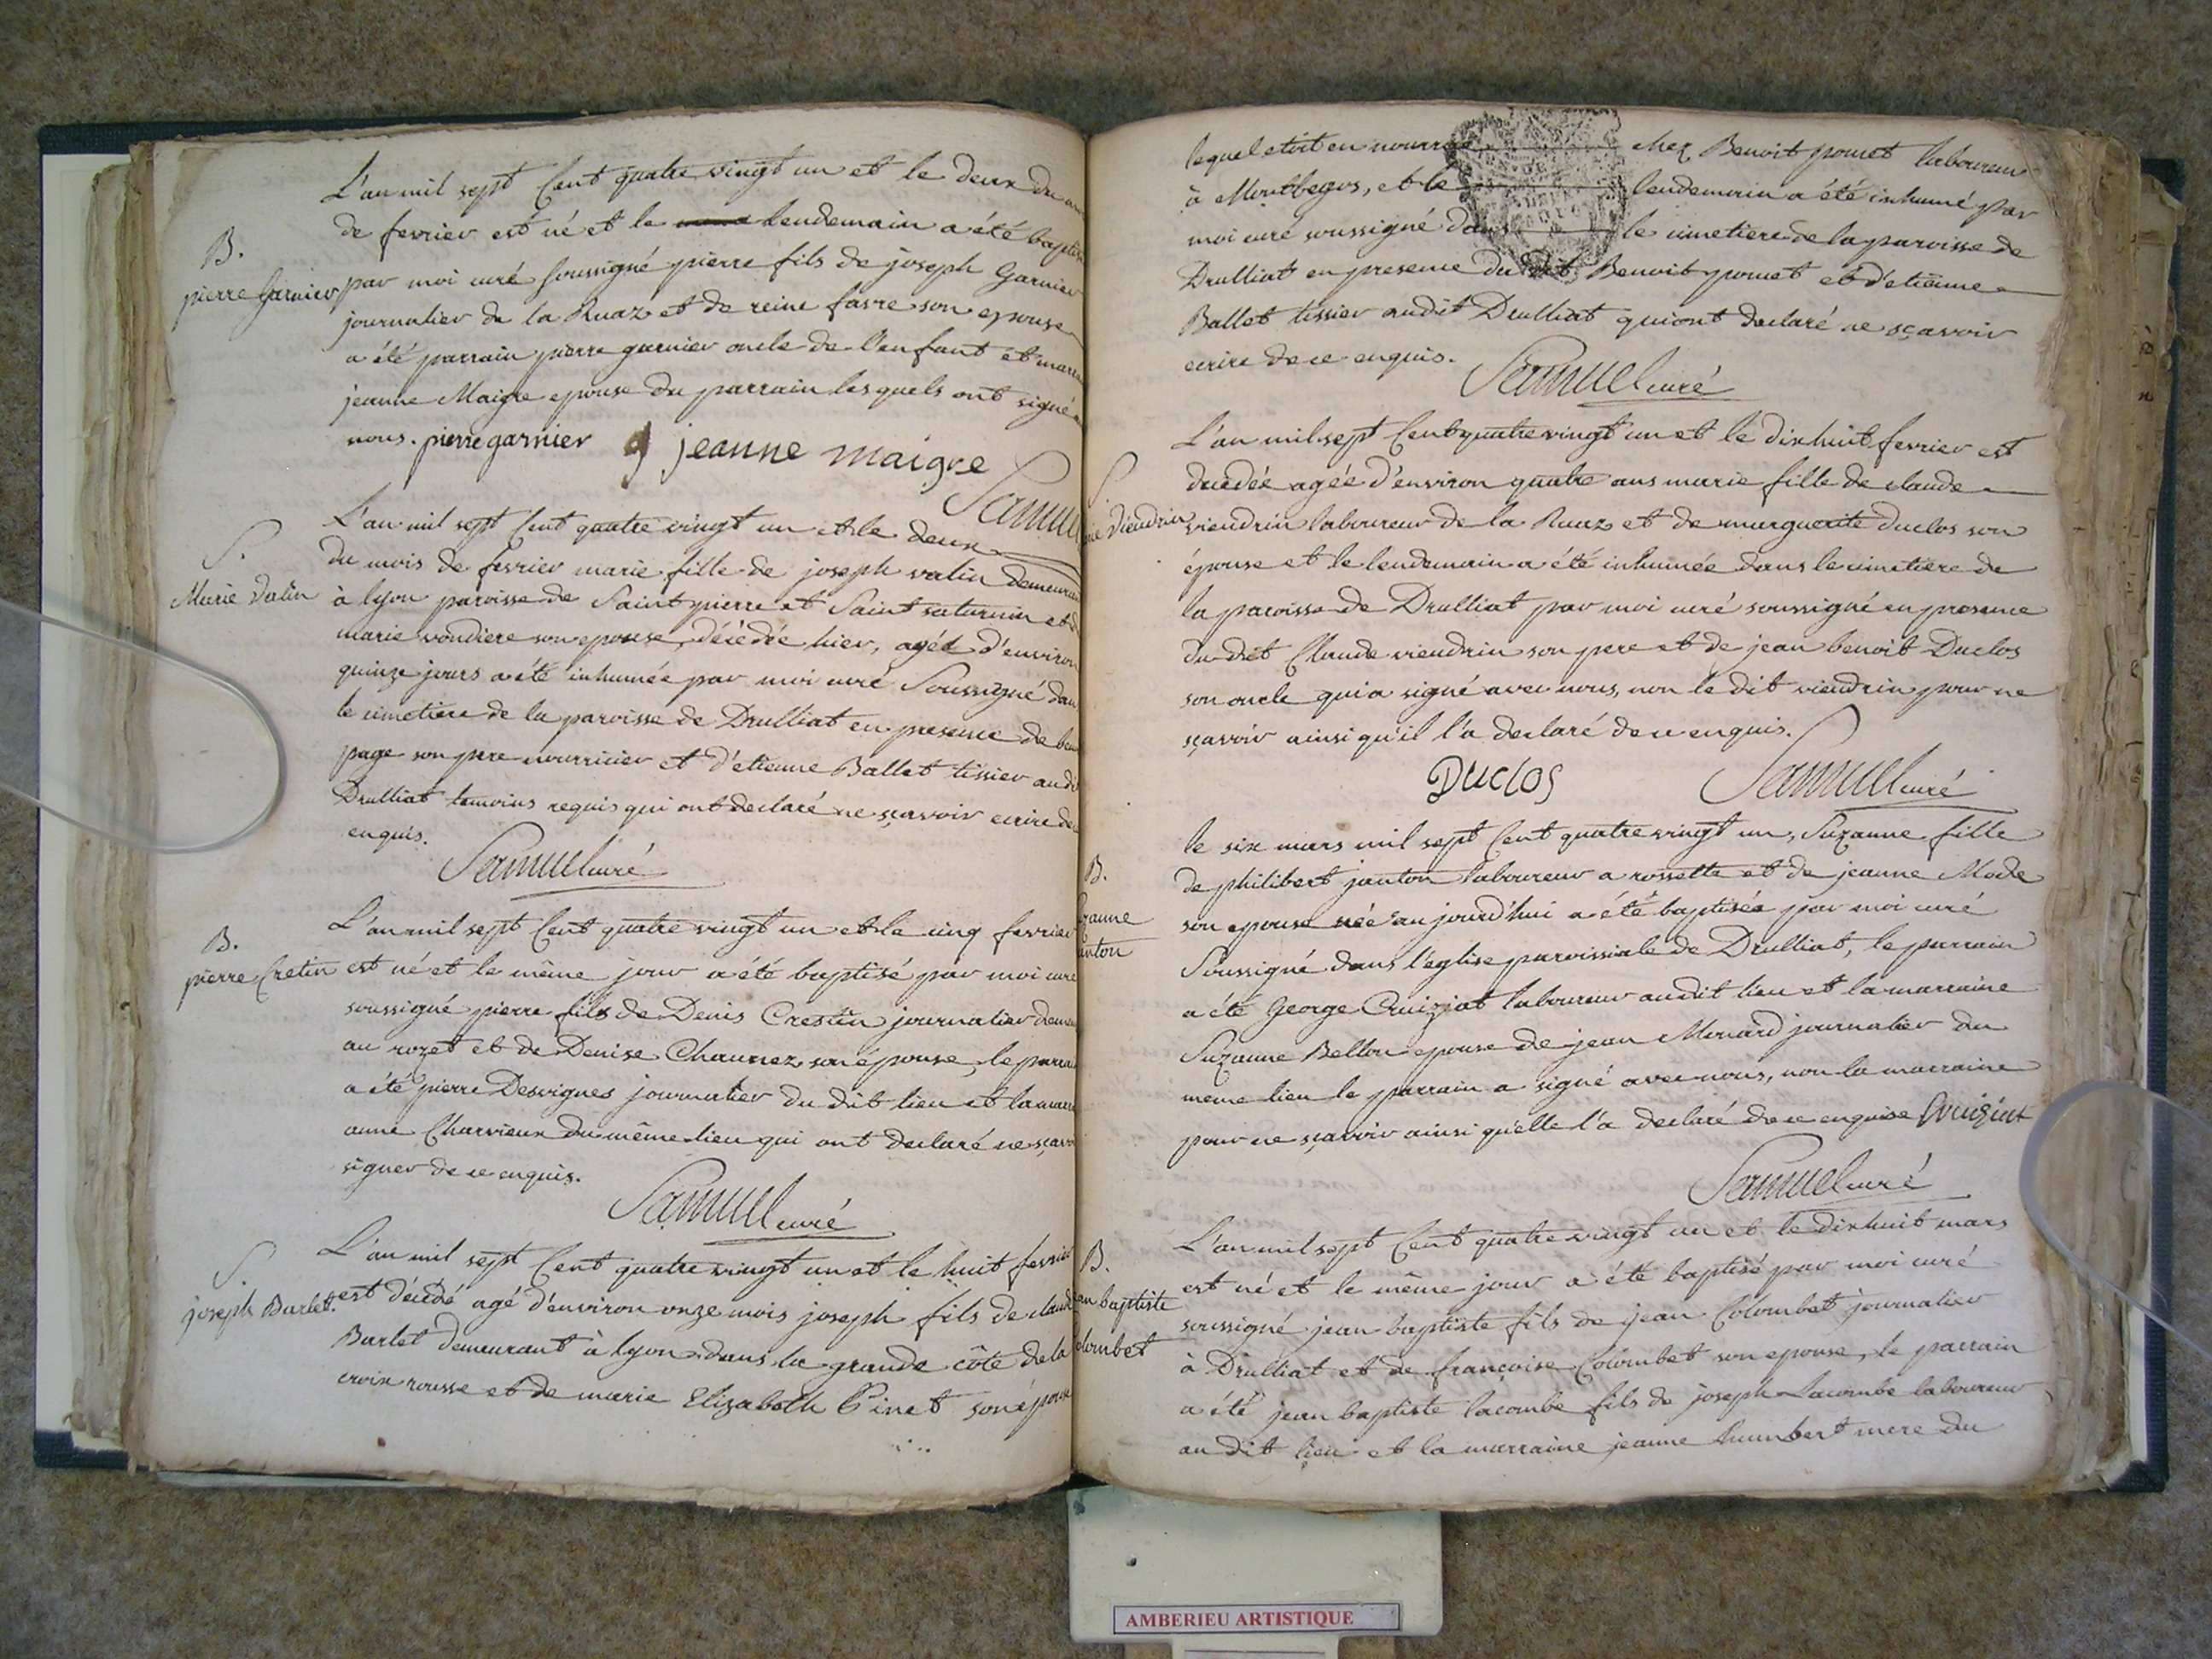 L'an mil sept Cent quatre vingt un et le deux du
de fevrier est né et le lendemain a été baptisé
B.
pierre Garnier
par moi curé soussigné pierre fils de joseph Garnier
journalier de la Ruaz et de reine favre son epouse
a été parrain pierre garnier oncle de l'enfant et marra
jeanne Maigre epouse du parrain lesquels ont signé
nous. pierre garnier jeanne maigre
Samuel
L'an mil sept Cent quatre vingt un et le deux
S.
Marie Valin
du mois de fevrier marie fille de joseph valin demeurant
à lyon paroisse de Saint pierre et Saint saturnin et
marie vondiere son epouse, décédée hier, agée d'environ
quinze jours a été inhumée par moi curé Soussigné dans
le cimetiere de la paroisse de Drulliat en presence de ben
page son pere nourricier et d'etienne Ballet tissier audit
Drulliat temoins requis qui ont declaré ne sçavoir ecrire de
enquis.
Samuel curé
L'an mil sept Cent quatre vingt un et le cinq fevrier
B.
pierre Cretin
est né et le même jour a été baptisé par moi curé
soussigné pierre fils de Denis Crestin journalier demeu
au rozet et de Denise Chaunez son épouse, le parra
a été pierre Desvignes journalier du dit lieu et la marr
anne Charvieux du même lieu qui ont declaré ne sçavoi
signer de ce enquis.
Samuel curé
S.
joseph Burlet.
L'an mil sept Cent quatre vingt un et le huit fevrier
est décédé agé d'environ onze mois joseph fils de claude
Burlet demeurant à lyon dans la grande côte de la
croix rousse et de marie Elizabeth Pinet son épouse
lequel etoit en nourrice chez Benoit pomet laboureur
à Montbegos, et le lendemain a été inhumé par
moi curé soussigné dans le cimetiere de la paroisse de
Drulliat en presence du dit Benoit pomet et d'etienne
Ballet tissier audit Drulliat qui ont declaré ne sçavoir
ecrire de ce enquis.
Samuel curé
L'an mil sept Cent quatre vingt un et le dix huit fevrier est
S.
decedée agée d'environ quatre ans marie fille de claude
rie Vieudrin
vieudrin laboureur de la Ruaz et de marguerite duclos son
épouse et le lendemain a été inhumée dans le cimetiere de
la paroisse de Drulliat par moi curé soussigné en presence
du dit Claude vieudrin son pere et de jean benoit Duclos
son oncle qui a signé avec nous, non le dit vieudrin pour ne
sçavoir ainsi qu'il l'a declaré de ce enquis.
Duclos Samuel curé
le six mars mil sept Cent quatre vingt un, Suzanne fille
B.
zanne
anton
de philibert janton laboureur a rossette et de jeanne Mode
son epouse née aujourd'hui a été baptisée par moi curé
Soussigné dans l'eglise paroissiale de Drulliat, le parrain
a été George Cruizjat laboureur audit lieu et la marraine
Suzanne Bellon epouse de jean Monard journalier du
meme lieu le parrain a signé avec nous, non la marraine
pour ne sçavoir ainsi qu'elle l'a declaré de ce enquise
Samuel curé
L'an mil sept Cent quatre vingt un et le dix huit mars
B.
an baptiste
olombet
est né et le même jour a été baptisé par moi curé
soussigné jean baptiste fils de jean Colombet journalier
à Drulliat et de françoise Colombet son epouse, le parrain
a été jean baptiste lacombe fils de joseph Lacombe laboureur
au dit lieu et la marraine jeanne humbert mere du
AMBERIEU ARTISTIQUE